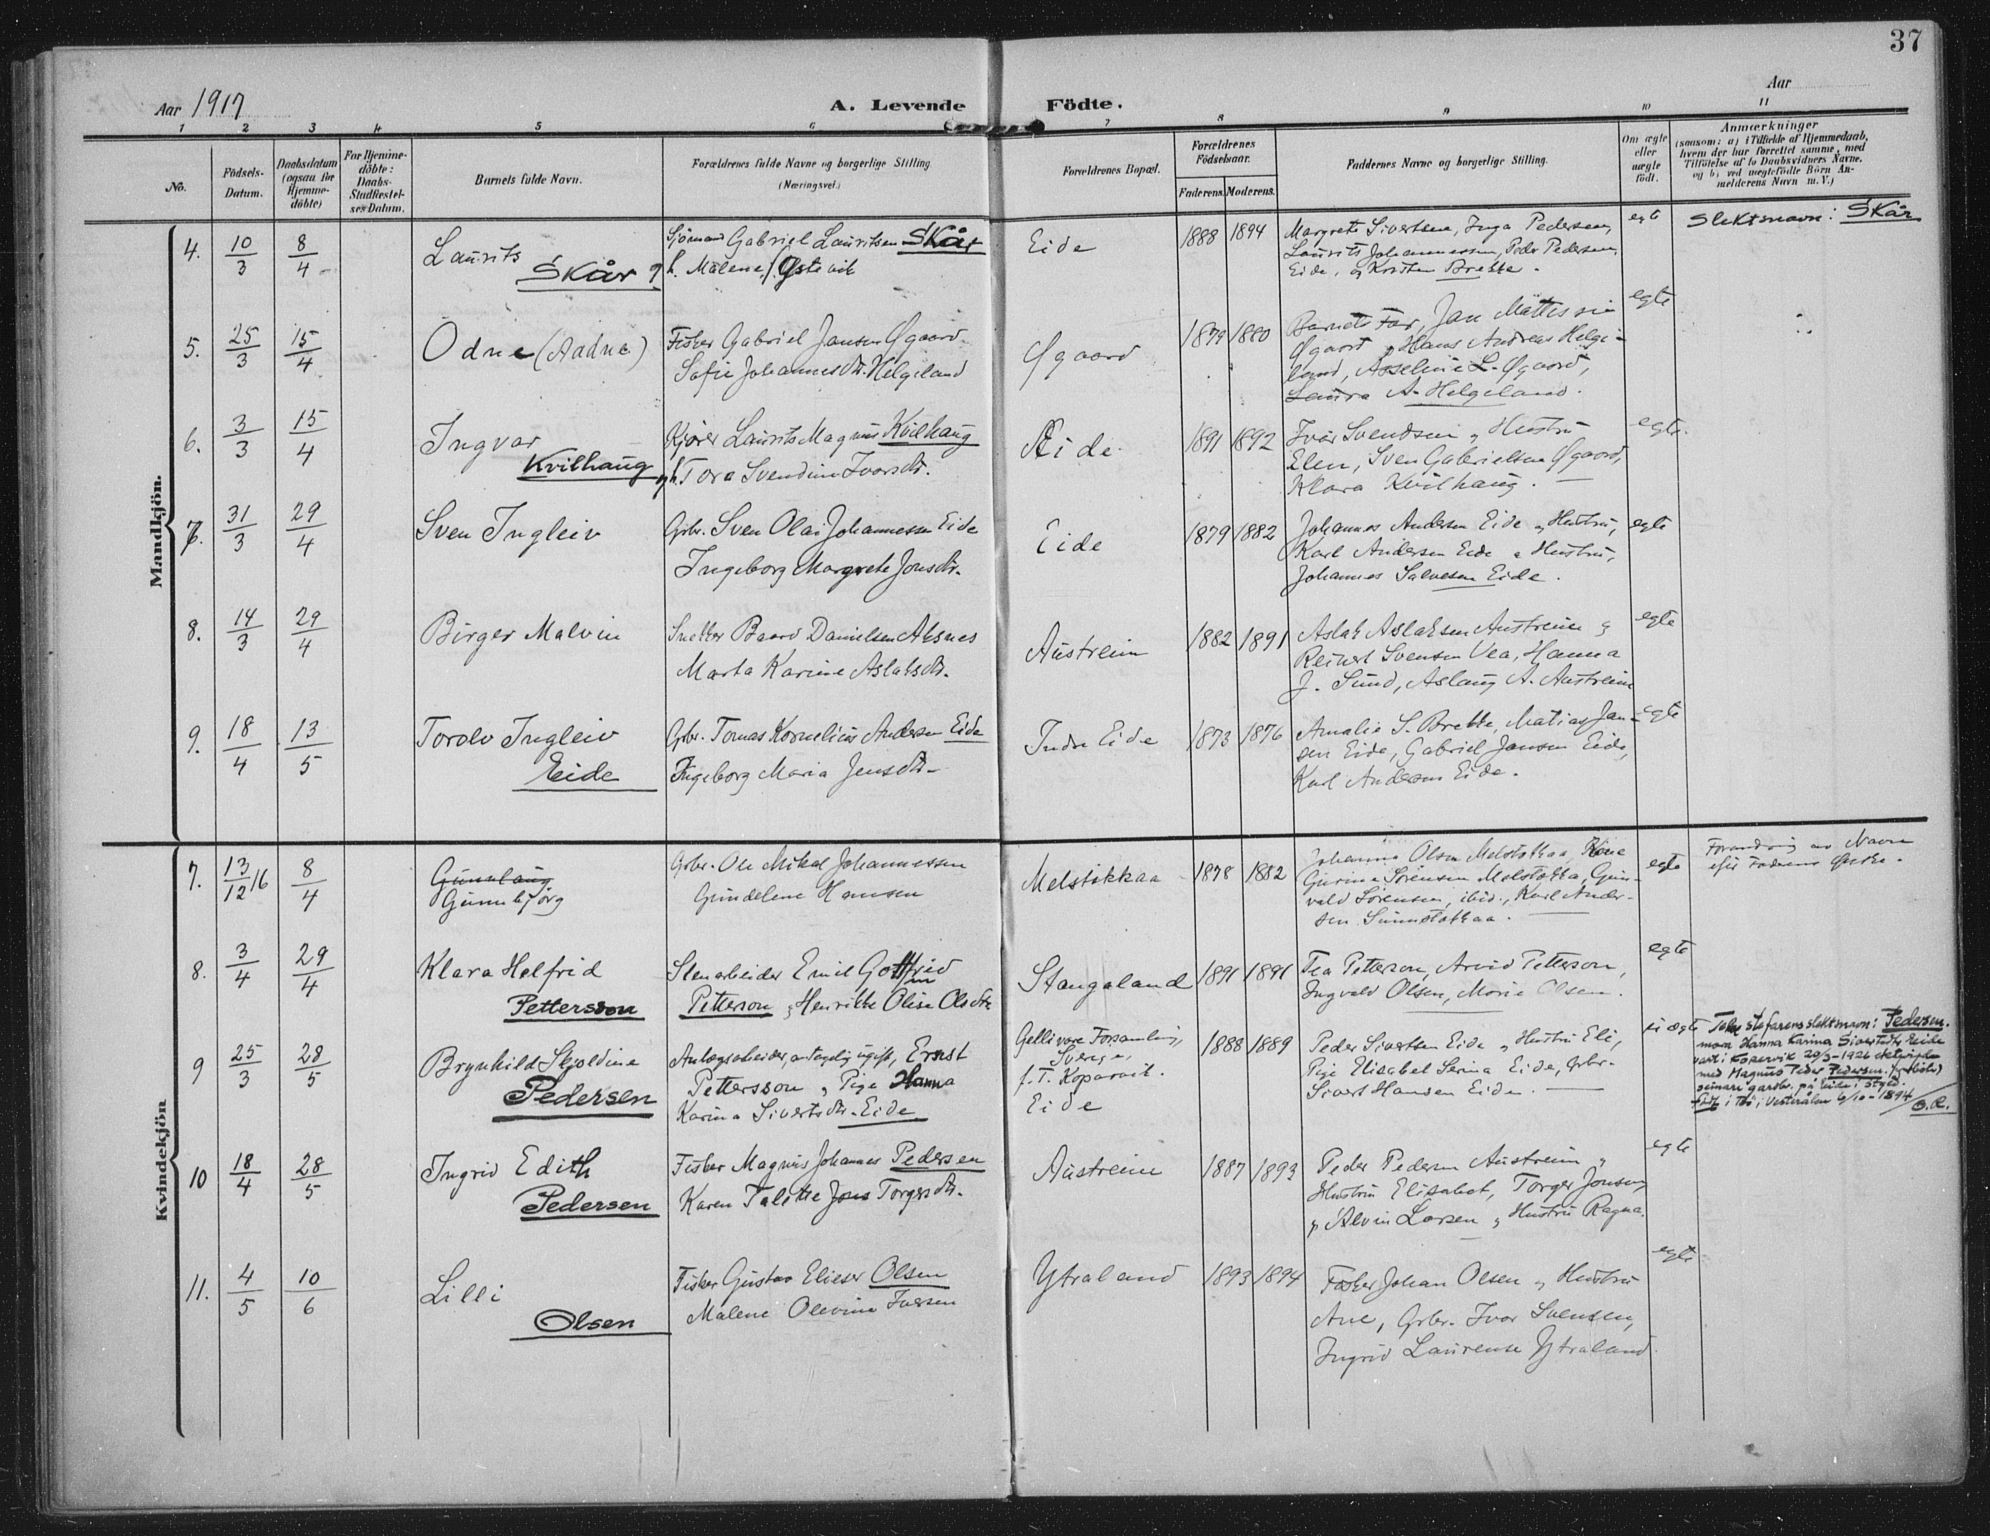 37
Aar 1917
A. Levende Födte.
Aar
1 2 3 4 5 6 7 8 9 10 11
No.
Födsels-
Datum.
Daabsdatum
(ogsaa for
Hjemme-
döbte)
For Hjemme-
döbte:
Daabs-
Stadfestel-
ses Datum.
Barnets fulde Navn.
Forældrenes fulde Navne og borgerlige Stilling
(Næringsvei.)
Forældrenes Bopæl.
Forældrenes
Födselsaar.
Faderens. Moderens.
Faddernes Navne og borgerlige Stilling.
Om ægte
eller
uægte
födt.
Anmærkninger
(saasom: a) i Tilfælde af Hjemmedaab,
hvem der har forrettet samme, med
Tilföielse af to Daabsvidners Navne,
og b) ved uegtefödte Börn An-
melderens Navn m. V.)
Mandkjön.
4. 10/3 8/4
Laurits
Skår
Sjömand Gabriel Lauritsen Skår
h. Malene Östevik
Eide
1888 1894
Margrete Sivertsen, Inga Pedersen,
Laurits Johannessen, Peder Pedersen,
Eide, og Kristen Brekke.
egte
Slektsnavn: Skår
5. 25/3 15/4
Odne (Aadne)
Fisker Gabriel Jansen Øgaard
Sofie Johannesdtr. Helgeland
Øgaard
1879 1880
Barnets Far, Jan Mattessin
Øgaard, Hans Andreas Helge-
land, Asseline L. Øgaard,
Laura A. Helgeland.
egte
6. 3/3 15/4
Ingvar
Kvilhaug
Kjörer Laurits Magnus Kvilhaug
og h. Tora Svendine Ivarsdtr.
Eide
1891 1892
Ivar Svendsen og Hustru
Elen, Sven Gabrielsen Øgaard,
Klara Kvilhaug.
egte.
7. 31/3 29/4
Sven Ingleiv
Grbr. Sven Olai Johannessen Eide
Ingeborg Margrete Jonsdtr.
Eide
1879 1882
Johannes Andersen Eide og Hustru,
Karl Andersen Eide og Hustru,
Johannes Salvesen Eide.
egte
8. 14/3 29/4
Birger Malvin
Snekker Baard Danielsen Aksnes
Marta Karine Aslaksdtr.
Austreim
1882 1891
Aslak Aslaksen Austreim og
Reinert Svensen Vea, Hanna
J. Sund, Aslaug A. Austreim
egte
9. 18/4 13/5
Torolv Ingleiv
Eide
Grbr. Tomas Kornelius Andersen Eide
Ingeborg Maria Jensdtr.
Indre Eide
1873 1876
Amalie S. Brekke, Matias Jan-
sen Eide, Gabriel Jansen Eide,
Karl Andersen Eide.
egte
Kvindekjön
7. 13/12 16 8/4
Gunnlaug
Gunnbjörg
Grbr. Ole Mikal Johannessen
Gundelene Hansen
Melstokkaa
1878 1882
Johanna Olsen Melstokkaa,
Gurine Sörensen Melstokka, Gun-
vald Sörensen, ibid., Karl Ander-
sen Sunnstokkaa.
egte
Forandring av Navn
efter Faderens Önske.
8. 3/4 29/4
Klara Helfrid
Pettersson
Stenarbeider Emil Gottfrid
Petterson, Henrikke Oline Olsdtr
Stangaland
1891 1891
Tea Petterson, Arvid Petterson,
Ingvald Olsen, Marie Olsen.
egte
9 25/3 28/5
Brynhild Skjoldine
Pedersen
Anlægsarbeider, antagelig ugift, Ernst
Pettersson, Pige Hanna
Karina Sivertsdtr. Eide
Gellivare Forsamling,
Sverige,
f. T. Kopervik.
Eide
1888 1889
Peder Sivertsen Eide og Hustru Eli,
Pige Elisabet Serina Eide, Grbr.
Sivert Hansen Eide.
ei ægte
stefarens slektsnavn: Pedersen.
mora Hanna Karina Sivertsdtr Eide
vart i Kopervik 20/3-1926 ektevigde
med Magnus Peder Pedersen.
seinare gardbr. på Eide i
Född i Bö i Vesterålen 6/10-1894
10 18/4 28/5
Ingrid Edith
Pedersen
Fisker Magnus Johannes Pedersen
Karen Talette Jons Torgersdtr.
Austreim
1887 1893
Peder Pedersen Austreim og
Hustru Elisabet, Torger Jonsen,
Alvin Larsen og Hustru Ragna.
egte
11. 4/5 10/6
Lilli
Olsen
Fisker Gustav Elieser Olsen
Malene Olevine Iversen
Ytraland
1893 1894
Fisker Johan Olsen og Hustru
Ane, Grbr. Ivar Svensen,
Ingrid Laurense Ytraland.
egte